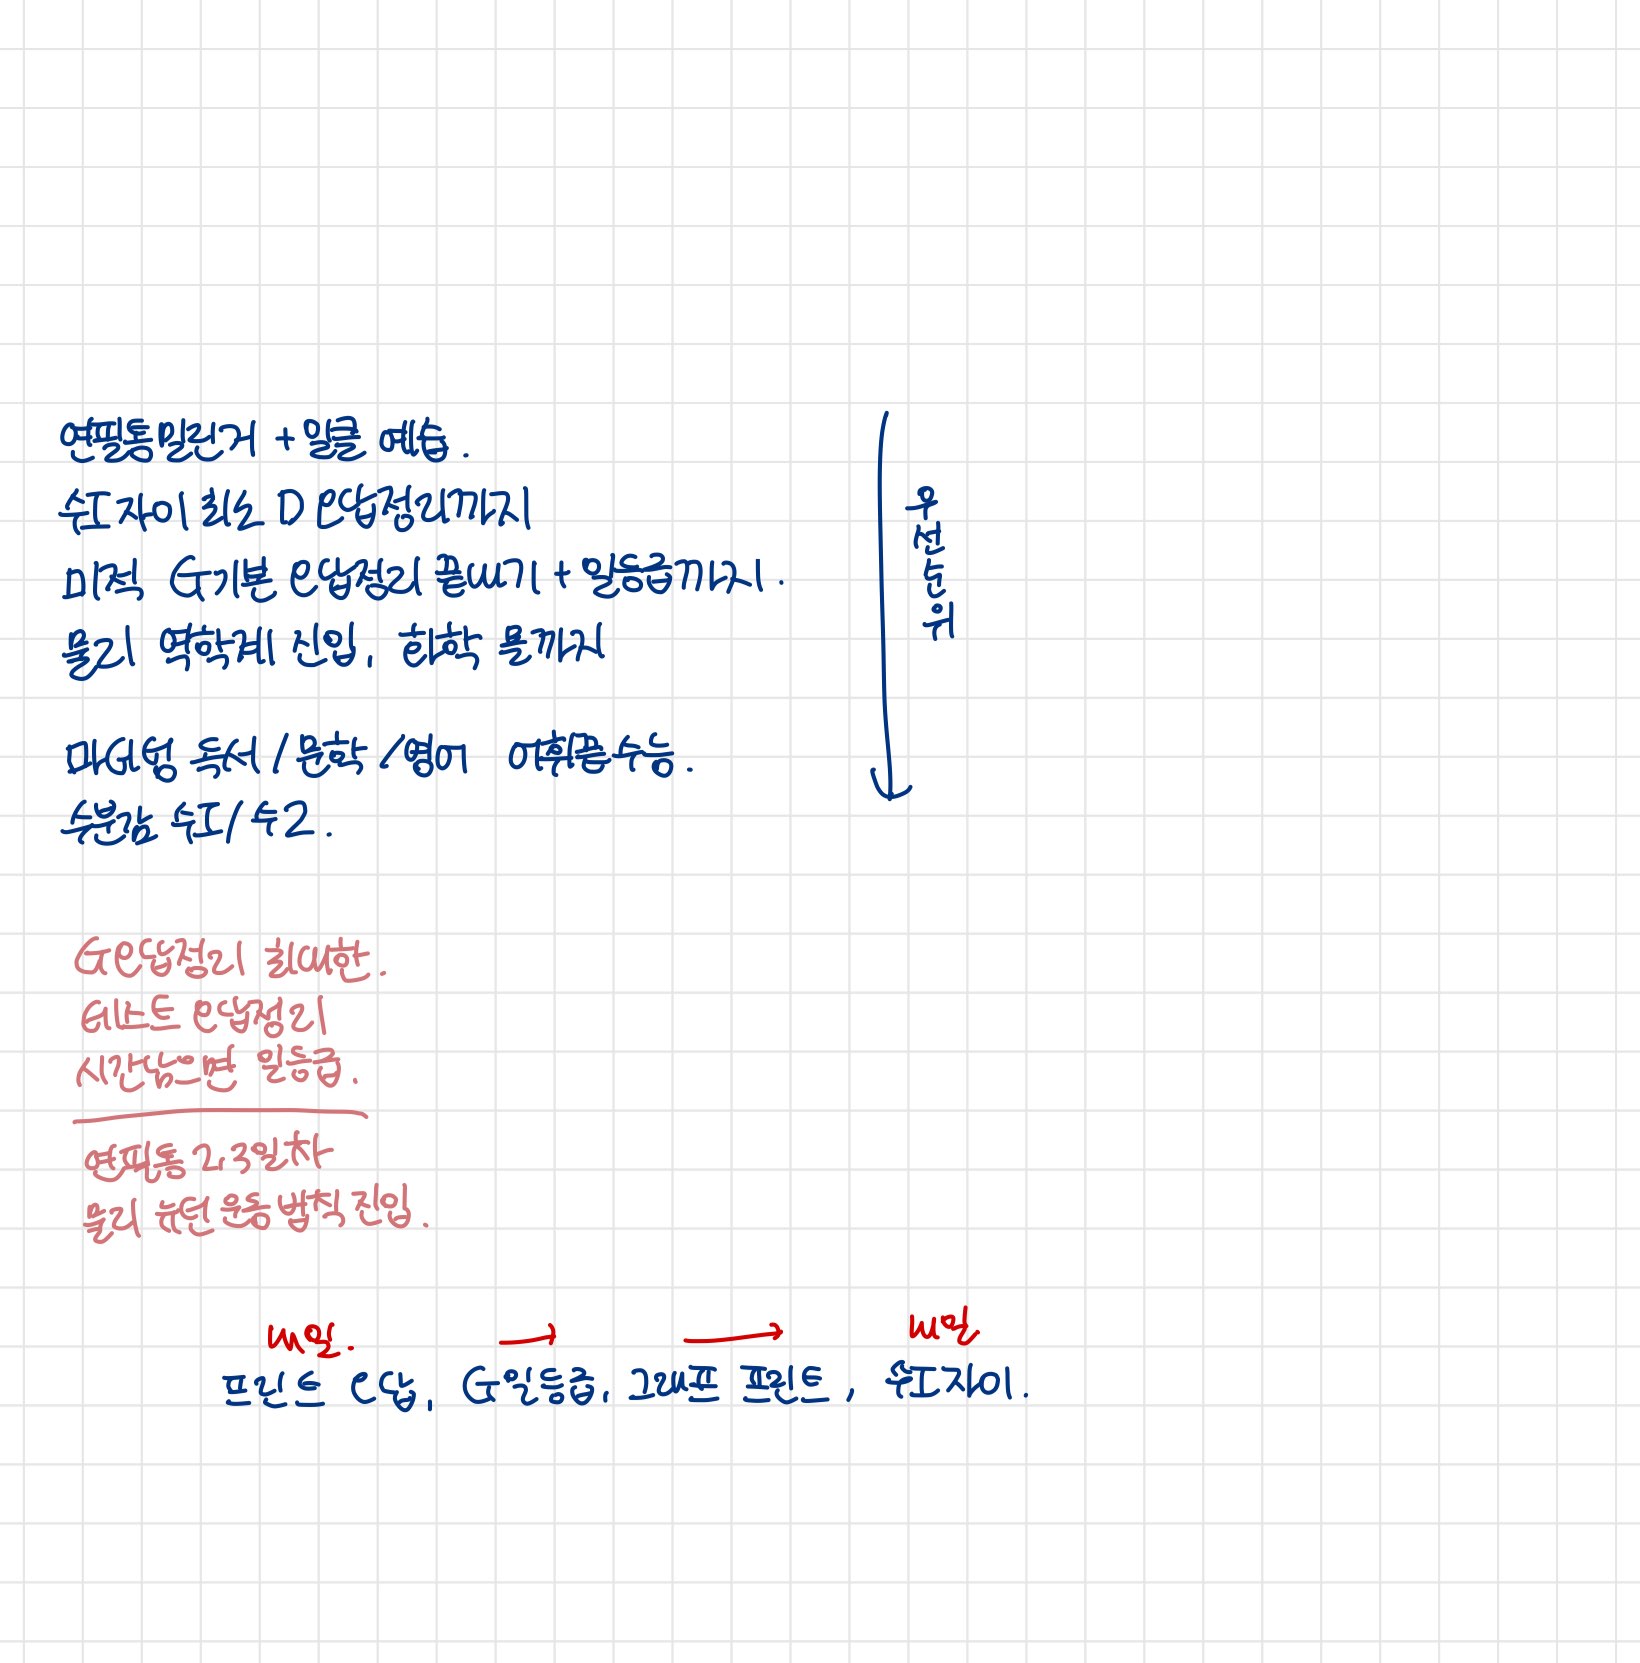 연필통밀린거 + 일클 예습.
수I 자이 최소 D 오답정리까지
미적 G기본 오답정리 끝내기 + 일등급까지.
물리 역학계 진입, 화학 몰까지
마더텅 독서 / 문학 / 영어 어휘끝수능.
수분감 수I / 수2.
우선순위
G오답정리 최대한.
테스트 오답정리
시간남으면 일등급.
연필통 2,3일차
물리 뉴턴 운동법칙 진입.
내일. → → 내일
프린트 오답, G일등급, 그래프 프린트, 수I자이.